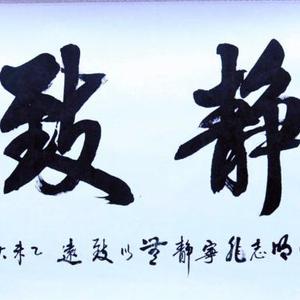 静致
明志非寧静無以致遠乙未